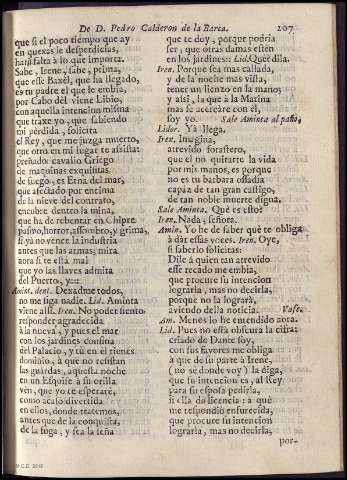 De D. Pedro Calderon de la Barca. 207
que si el poco tiempo que ay
en quexas le desperdicias,
harà falta à lo que importa.
Sabe, Irene, sabe, prima,
que esse Baxèl, que ha llegado,
es tu padre el que le embia,
por Cabo dèl viene Libio,
con aquella intencion misma
que traxe yo, que sabiendo
mi pèrdida, solicita
el Rey, que me juzga muerto,
que otro en mi lugar te assista:
preñado cavallo Griego
de maquinas exquisitas
de fuego, es Etna del mar,
que afectado por encima
de la nieve del contrato,
encubre dentro la mina,
que ha de rebentar en Chipre
pasmo, horror, assombro, y grima,
si yà no vence la industria
antes que las armas; mira
aora si te està mal
que yo las llaves admita
del Puerto, y::-
Amint. dent. Dexadme todos,
no me siga nadie. Lid. Aminta
viene allì. Iren. No poder siento
responder agradecida
à la nueva, y pues el mar
con los jardines confina
del Palacio, y tù en èl tienes
dominio, à que no resistan
las guardas, aquesta noche
en un Esquife à su orilla
ven, que yo te esperarè,
como acaso divertida
en ellos, donde tratèmos,
antes que de la conquista,
de la fuga, y sea la seña
que te doy, porque podria
ser, que otras damas estèn
en los jardines: Lid. Què dilla.
Iren. Porque sea mas callada,
y de la noche mas vista,
tener un lienzo en la mano;
y assi, la que à la Marina
mas se acercàre con èl,
soy yo. Sale Aminta al paño.
Lidor. Yà llega.
Iren. Imagina,
atrevido forastero,
que el no quitarte la vida
por mis manos, es porque
no es tu barbara ossadia
capàz de tan gran castigo,
de tan noble muerte digna.
Sale Aminta. Què es esto?
Iren. Nada, señora.
Amin. Yo he de saber què te obliga
à dàr essas voces. Iren. Oye,
si saberlo solicitas:
Dile à quien tan atrevido
esse recado me embia,
que procure su intencion
lograrla, mas no decirla,
porque no la logrará,
aviendo della noticia. Vase.
Am. Menos lo he entendido aora.
Lid. Pues no està obscura la cifra:
criado de Dante soy,
con sus favores me obliga
à que de su parte à Irene,
(no sè donde voy) la diga,
que su intencion es, al Rey
para su esposa pedirla,
si ella dà licencia: à què
me respondiò enfurecida,
que procure su intencion
lograrla, mas no decirla,
por-